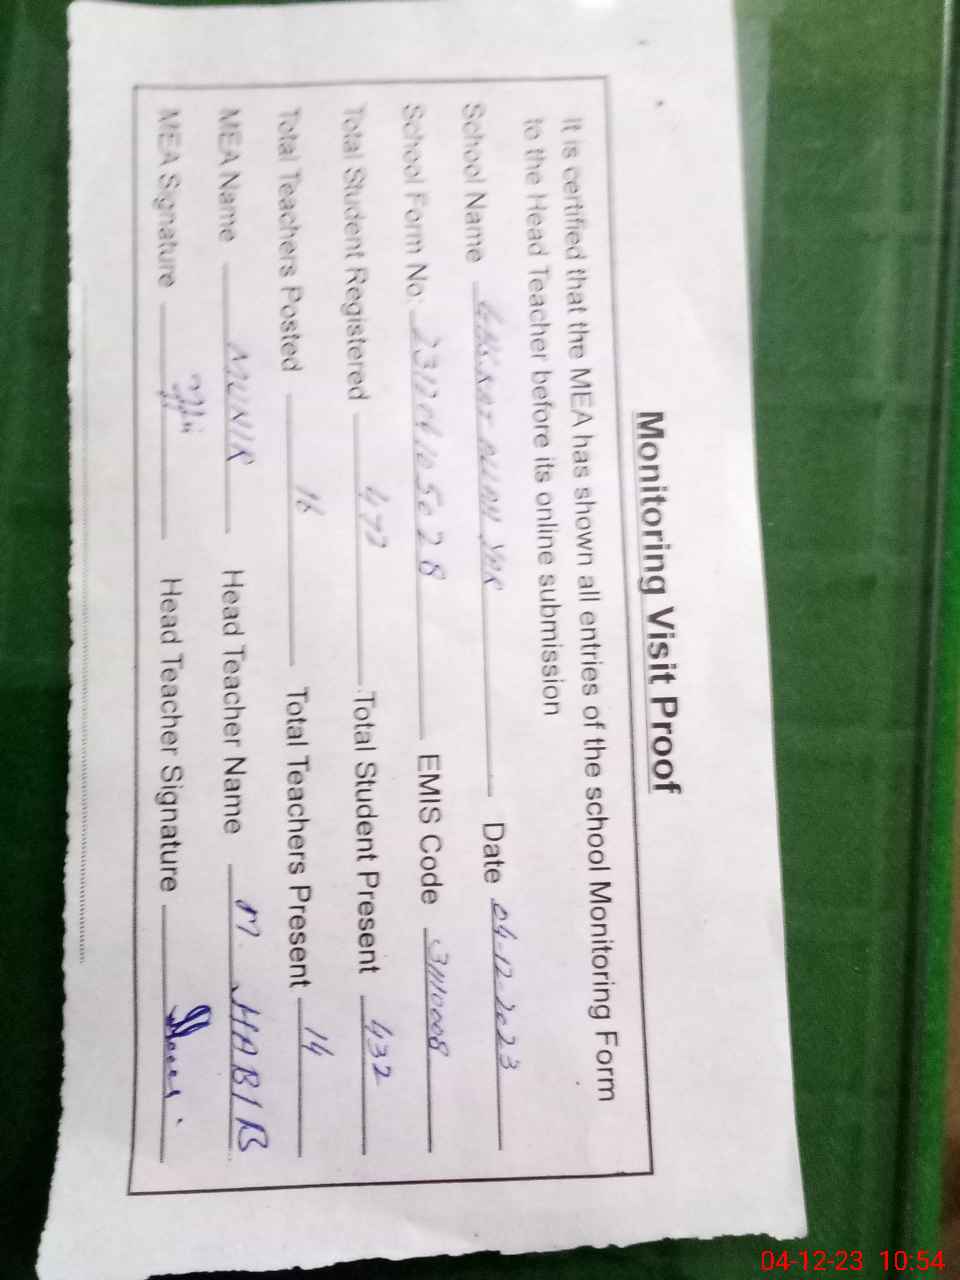 Monitoring Visit Proof
It is certified that the MEA has shown all entries of the school Monitoring Form
to the Head Teacher before its online submission
School Name Date 04-12-2023
School Form No: EMIS Code 31110008
Total Student Registered 477 Total Student Present 432
Total Teachers Posted 16 Total Teachers Present 14
MEA Name MUNIR Head Teacher Name M. HABIB
MEA Signature Head Teacher Signature
04-12-23 10:54